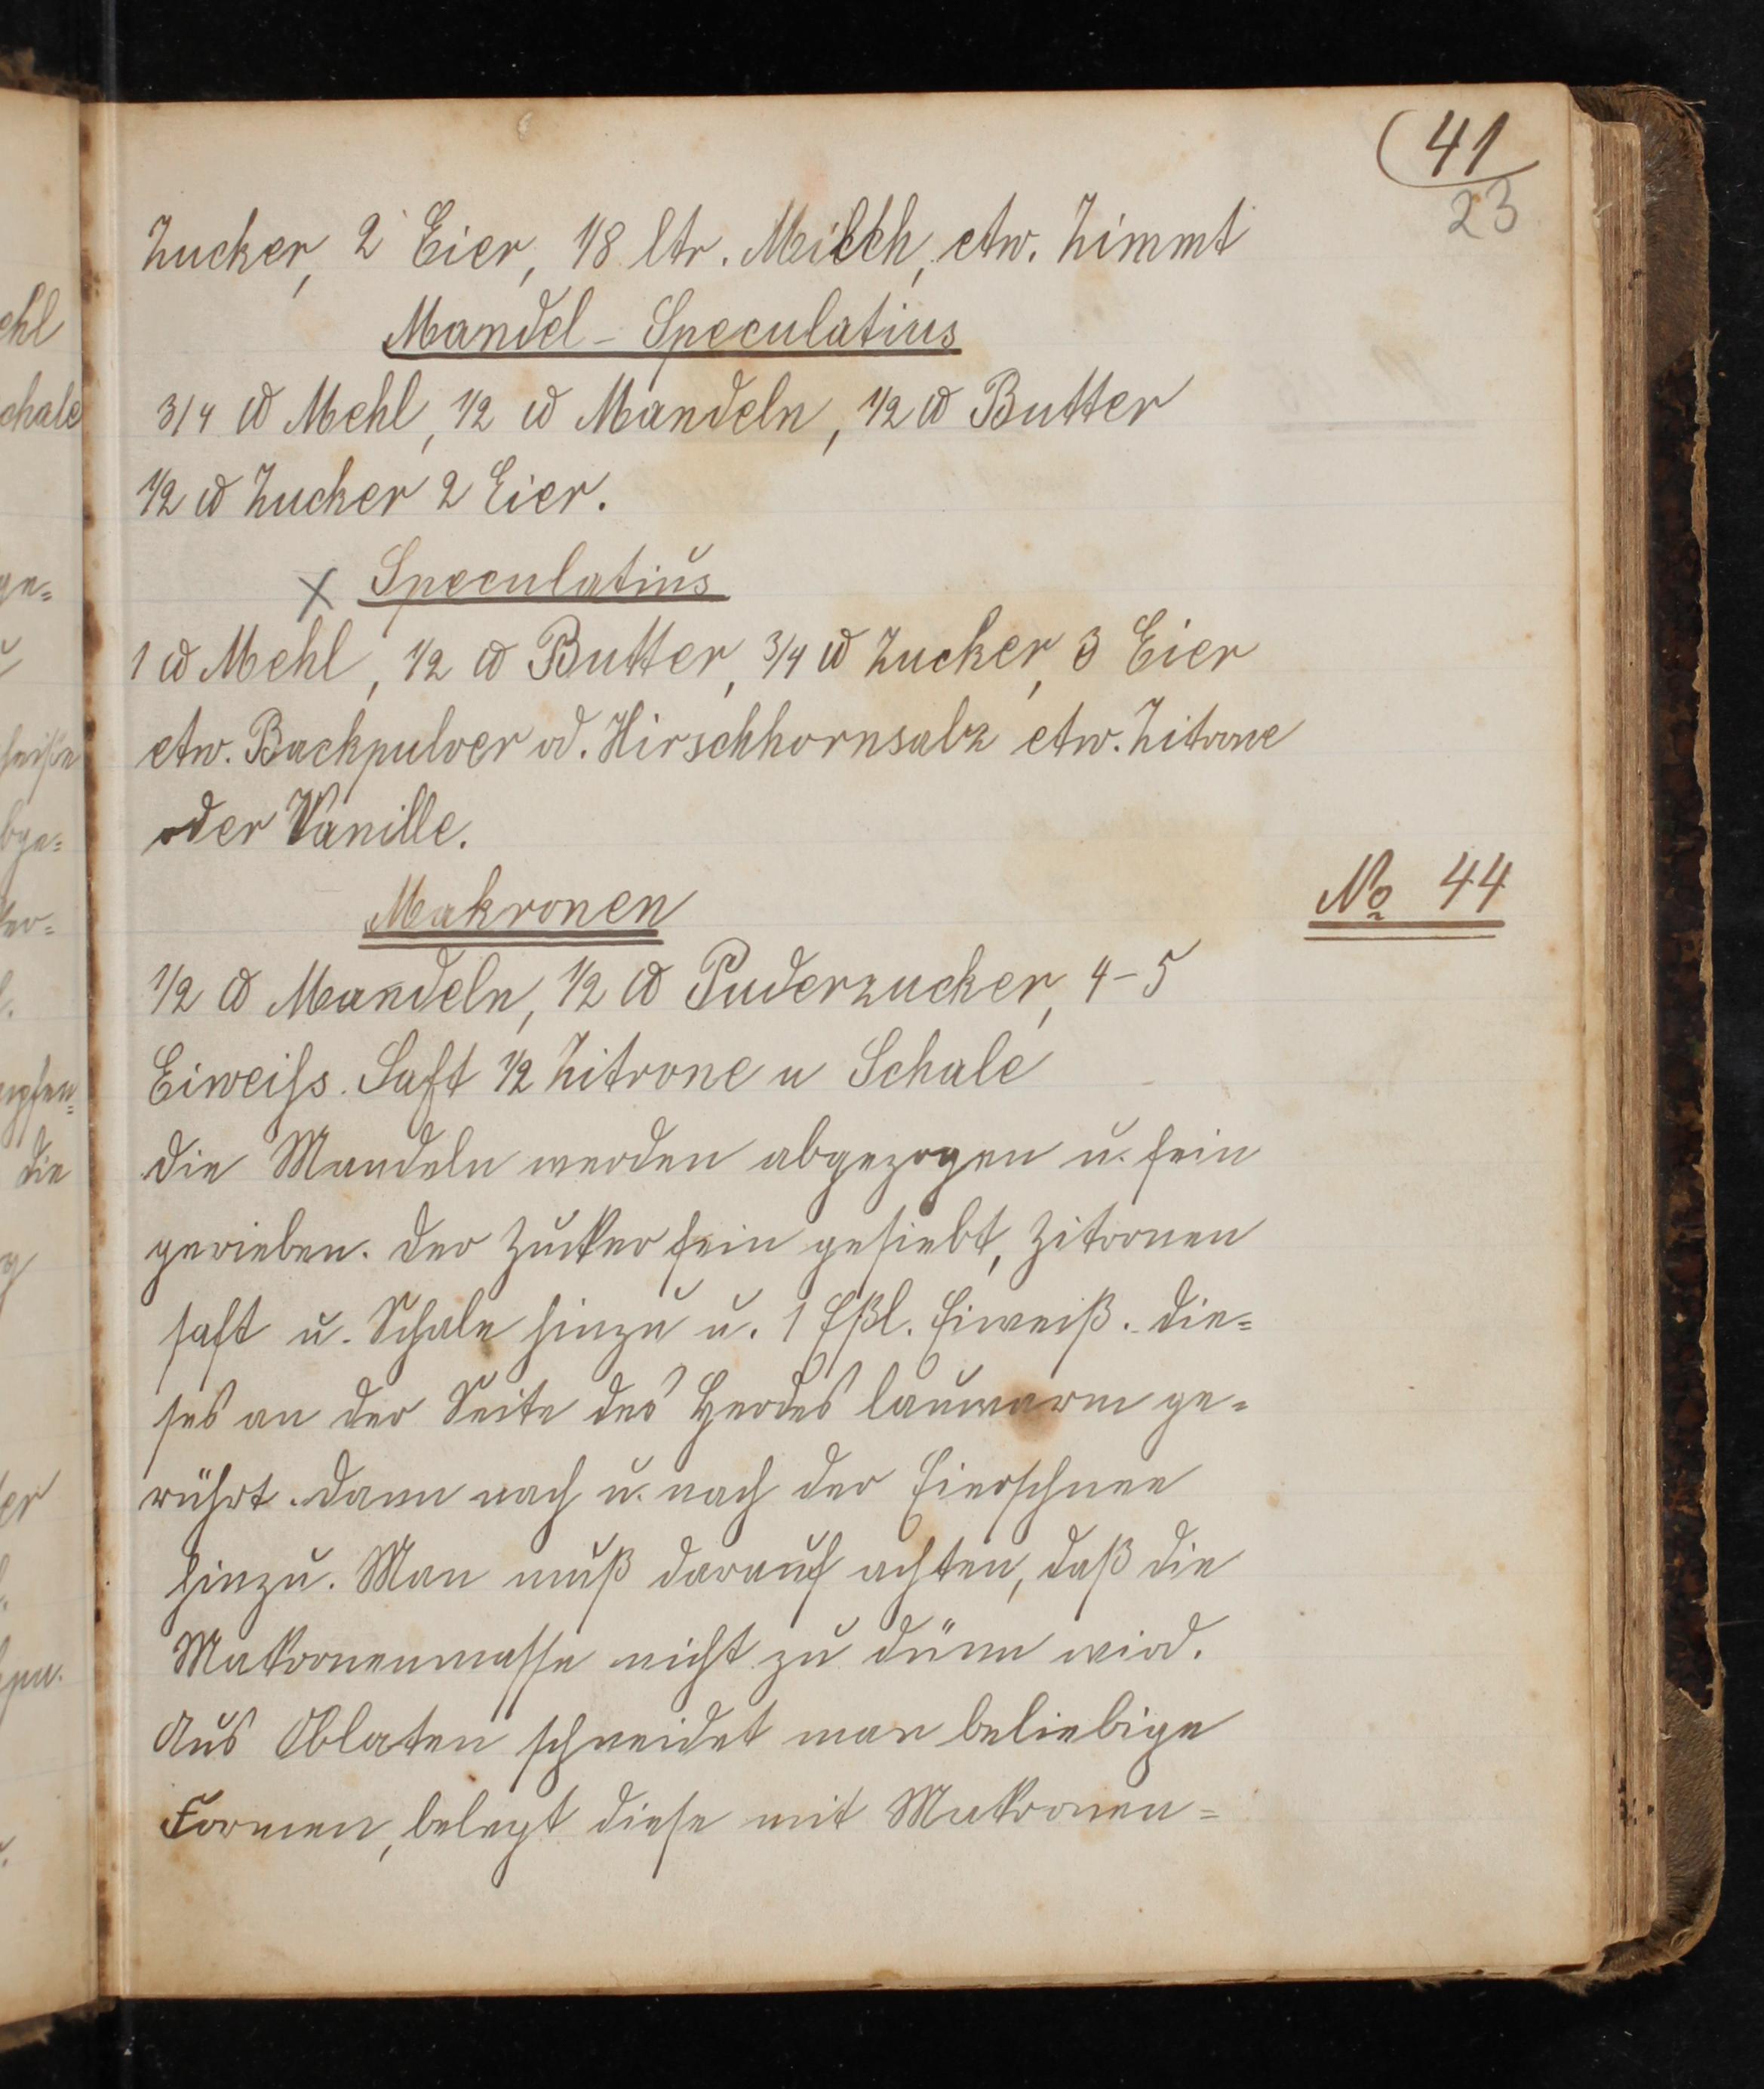 41
23
Zucker, 2 Eier, 1/8 ltr. Milch, etw. Zimmt
Mandel-Speculatius
3/4 ℔ Mehl, 1/2 ℔ Mandeln, 1/2 ℔ Butter
1/2 ℔ Zucker 2 Eier.
x Speculatius
1 ℔ Mehl, 1/2 ℔ Butter, 3/4 ℔ Zucker, 3 Eier
etw. Backpulver od. Hirschhornsalz etw. Zitrone
oder Vanille.
Makronen
No 44
1/2 ℔ Mandeln, 1/2 ℔ Puderzucker, 4-5
Eiweiss. Saft 1/2 Zitrone u Schale
Die Mandeln werden abgezogen u. fein
gerieben. Der Zucker fein gesiebt, Zitronen
saft u. Schale hinzu u. 1 Eßl. Eiweiß. Die=
ses an der Seite des Herdes lauwarm ge=
rührt. Dann nach u. nach der Eierschnee
hinzu. Man muß darauf achten, daß die
Makronenmasse nicht zu dünn wird.
Aus Oblaten schneidet man beliebige
Formen, belegt diese mit Makronen=
ehl
chale
ge=
bge=
die
er